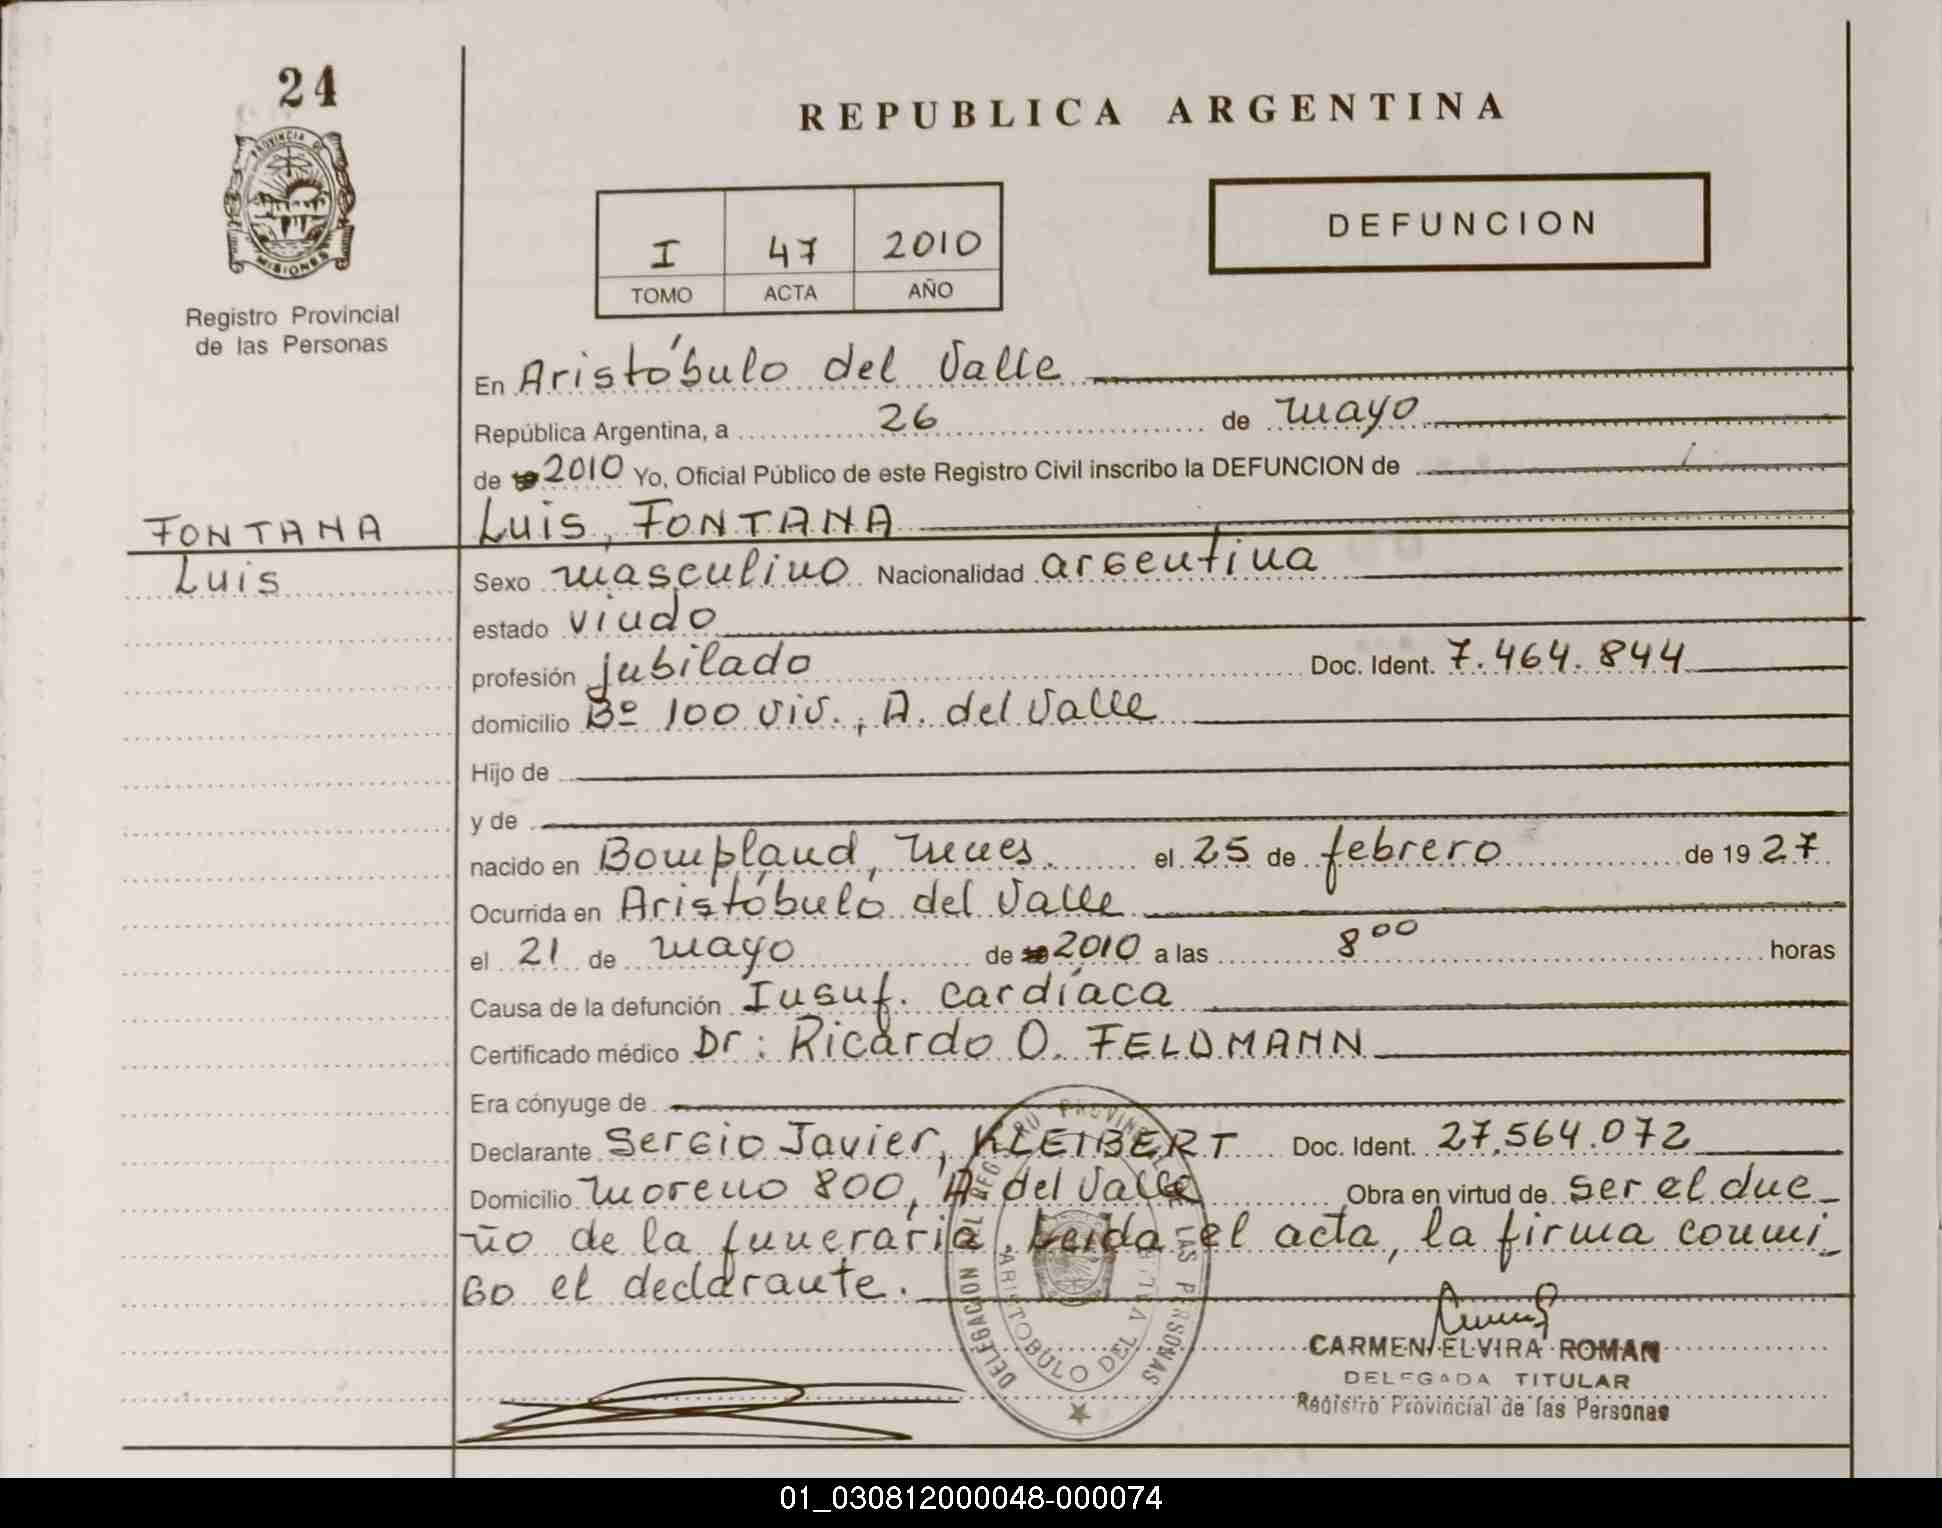 24
PROVINCIA DE
MISIONES
Registro Provincial
de las Personas
REPUBLICA ARGENTINA
DEFUNCION
I 47 2010
TOMO ACTA AÑO
En Aristóbulo del Valle
República Argentina, a 26 de mayo
de 2010 Yo, Oficial Público de este Registro Civil inscribo la DEFUNCION de
FONTANA Luis, FONTANA
Luis Sexo masculino Nacionalidad argentina
estado viudo
profesión jubilado Doc. Ident. 7.464.844
domicilio Bº 100 viv., A. del Valle
Hijo de
y de
nacido en Bompland, Mnes. el 25 de febrero de 1927
Ocurrida en Aristóbulo del Valle
el 21 de mayo de 2010 a las 8 00 horas
Causa de la defunción Insuf. cardíaca
Certificado médico Dr: Ricardo O. FELDMANN
Era cónyuge de
Declarante Sergio Javier, KLEIBERT Doc. Ident. 27.564.072
Domicilio Moreno 800, A. del Valle Obra en virtud de ser el due_
ño de la funeraria. Leida el acta, la firma conmi_
go el declarante.
DELEGACION DEL REGISTRO PROVINCIAL DE LAS PERSONAS
ARISTOBULO DEL VALLE
CARMEN ELVIRA ROMAN
DELEGADA TITULAR
Registro Provincial de las Personas
01_030812000048-000074